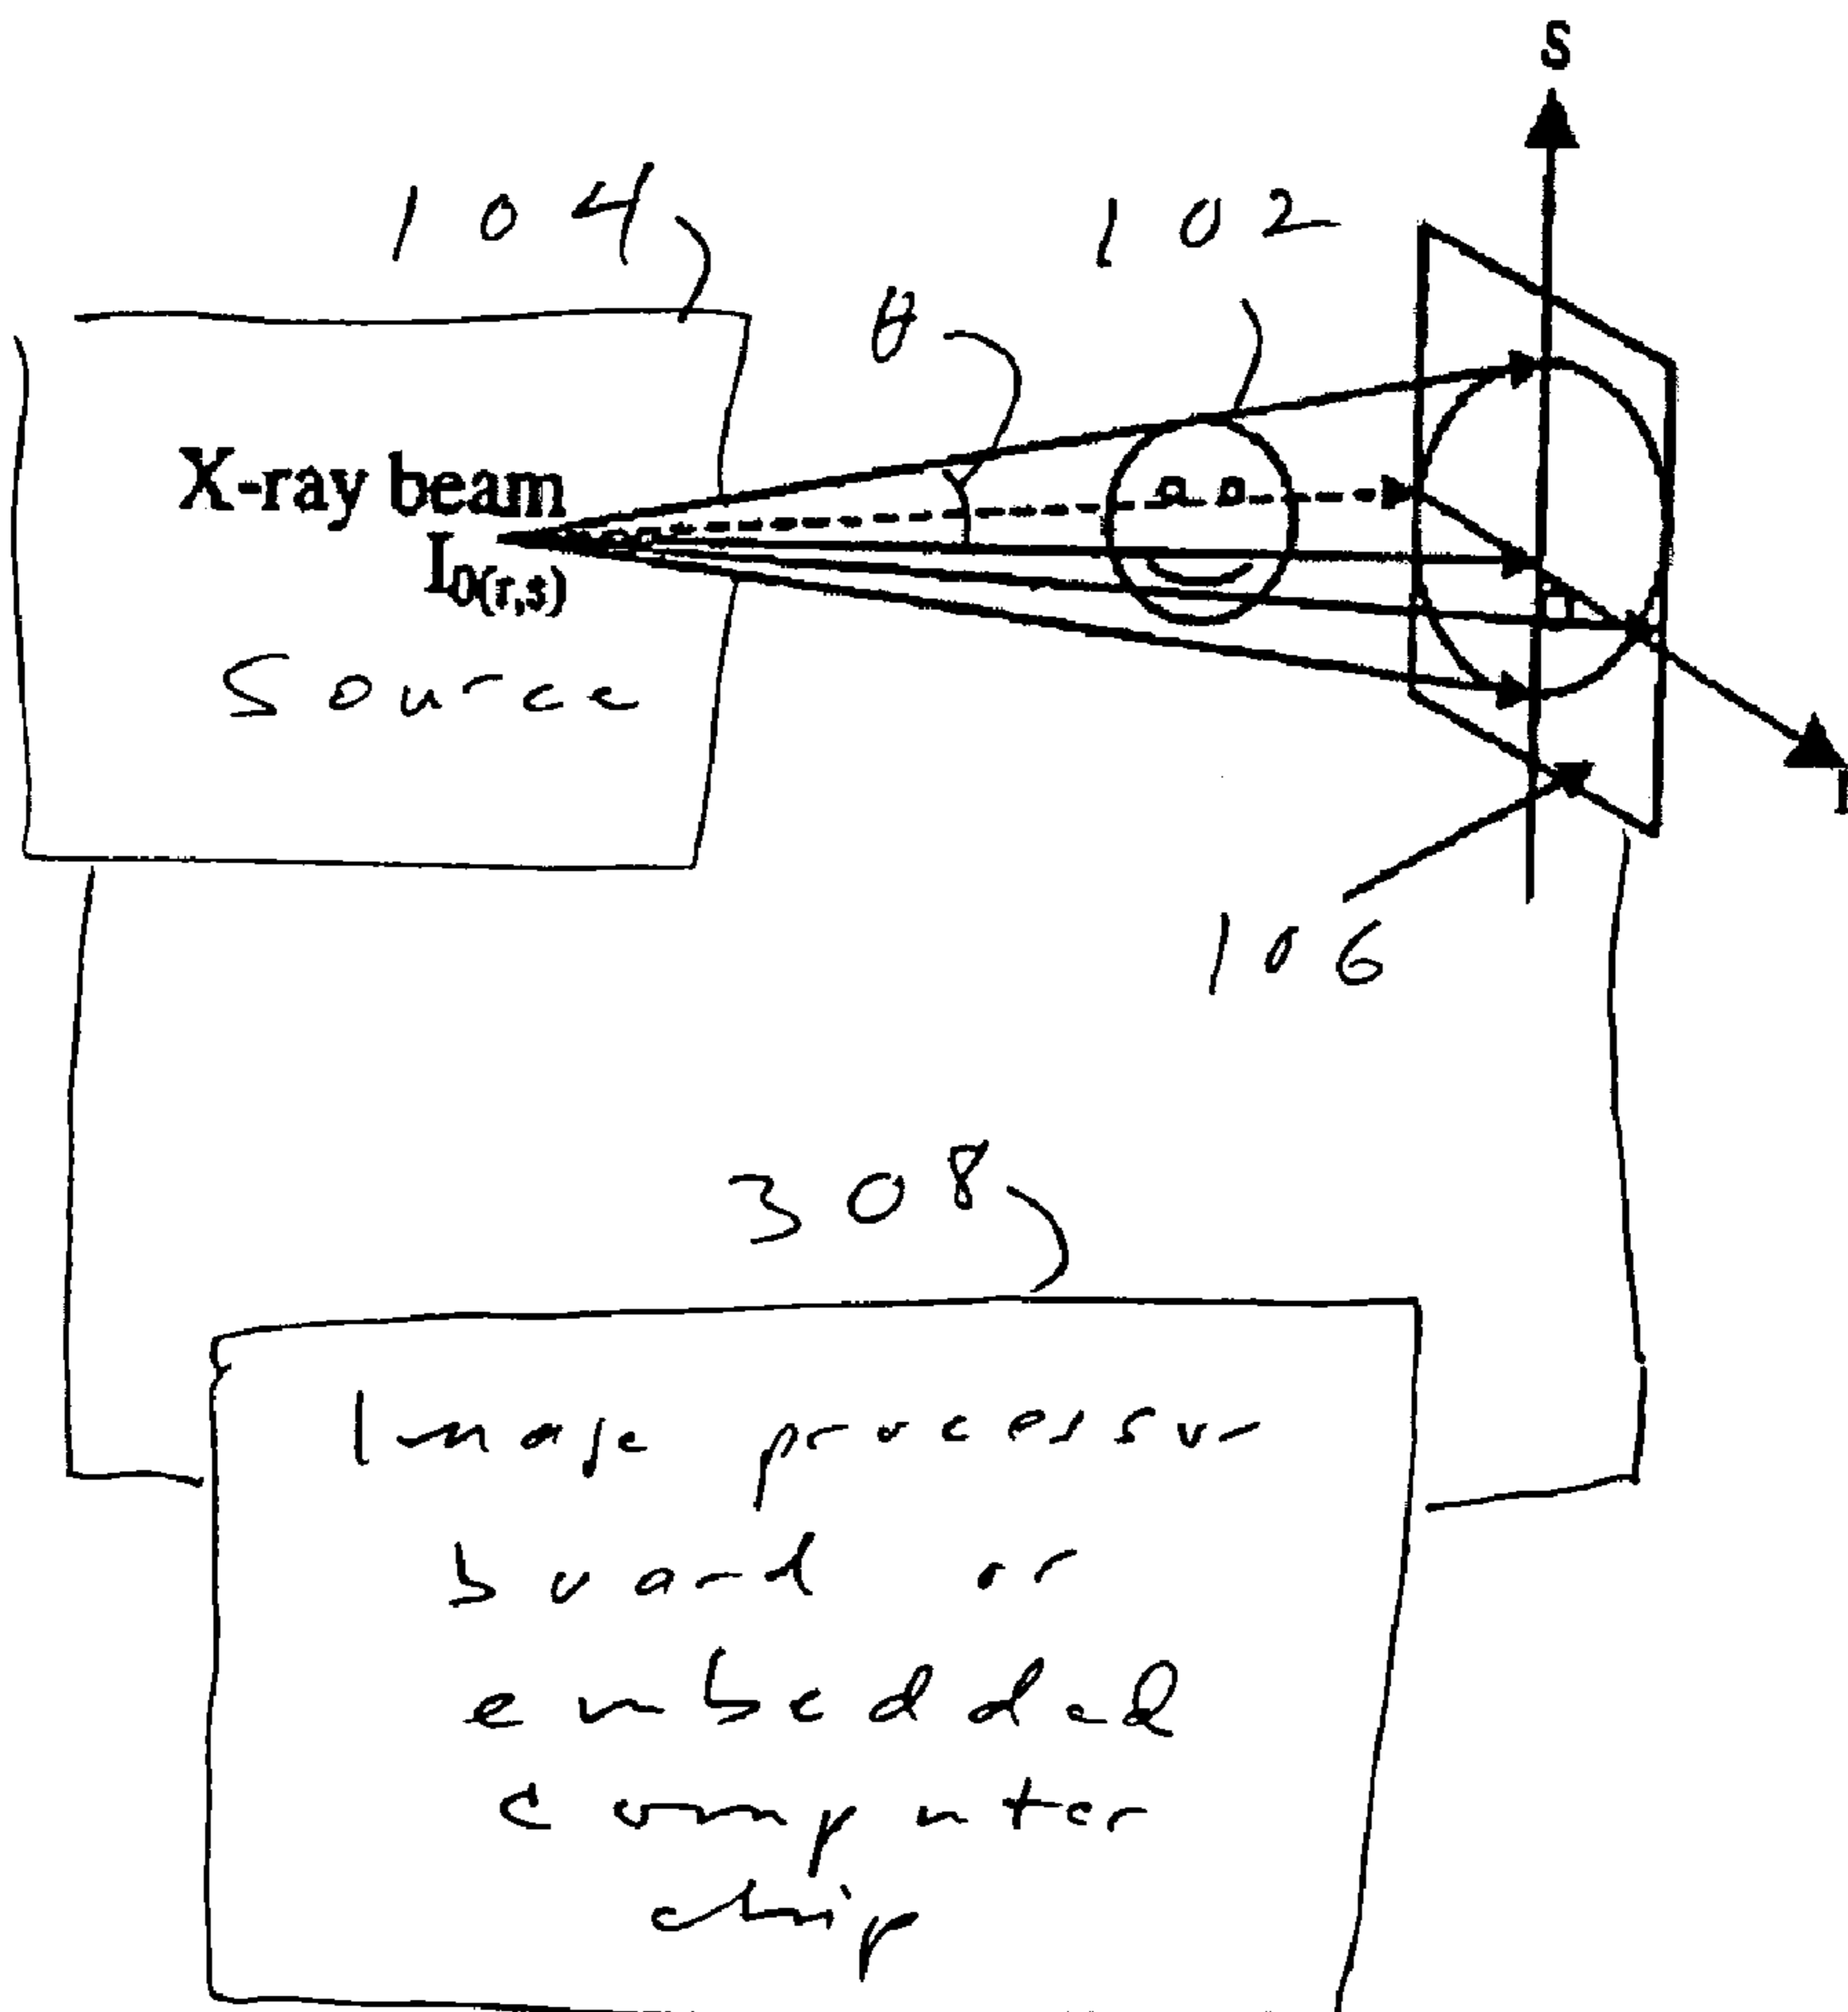 S
104
102
θ
X-ray beam
I0(r,s)
Source
106
308
Image processor
board or
embedded
computer
chip